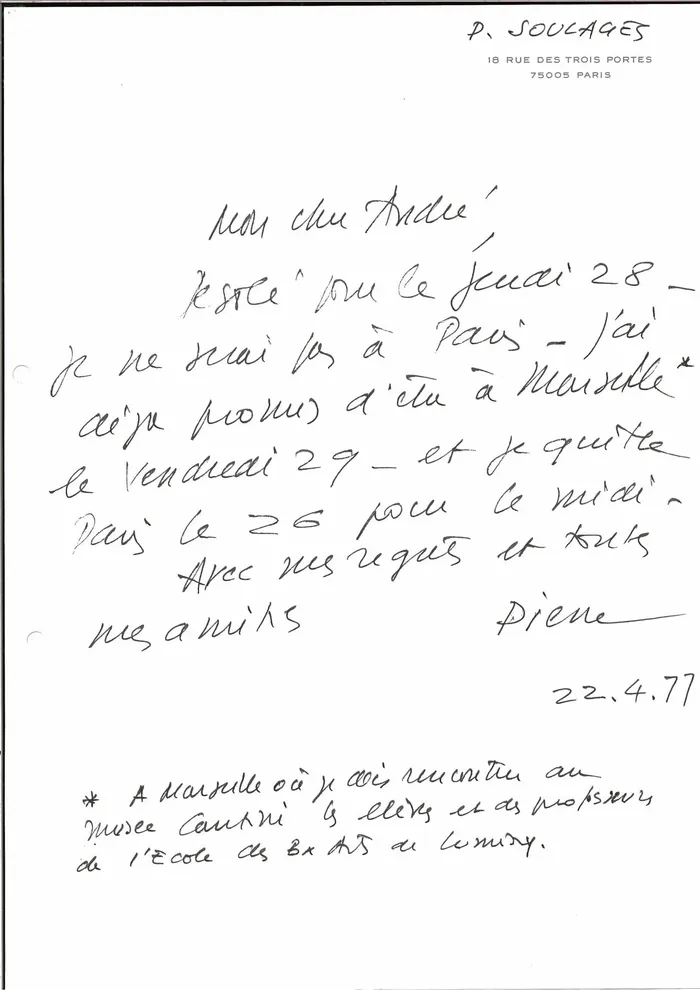 P. SOULAGES
18 RUE DES TROIS PORTES
75005 PARIS
Mon cher André
Désolé pour le jeudi 28 –
je ne serai pas à Paris – j'ai
déjà promis d'être à Marseille*
le Vendredi 29 – et je quitte
Paris le 26 pour le midi –
Avec mes regrets et toutes
mes amitiés Pierre
22.4.77
* A Marseille où je dois rencontrer au
musée Cantini les élèves et des professeurs
de l'Ecole des Bx Arts de Luminy.